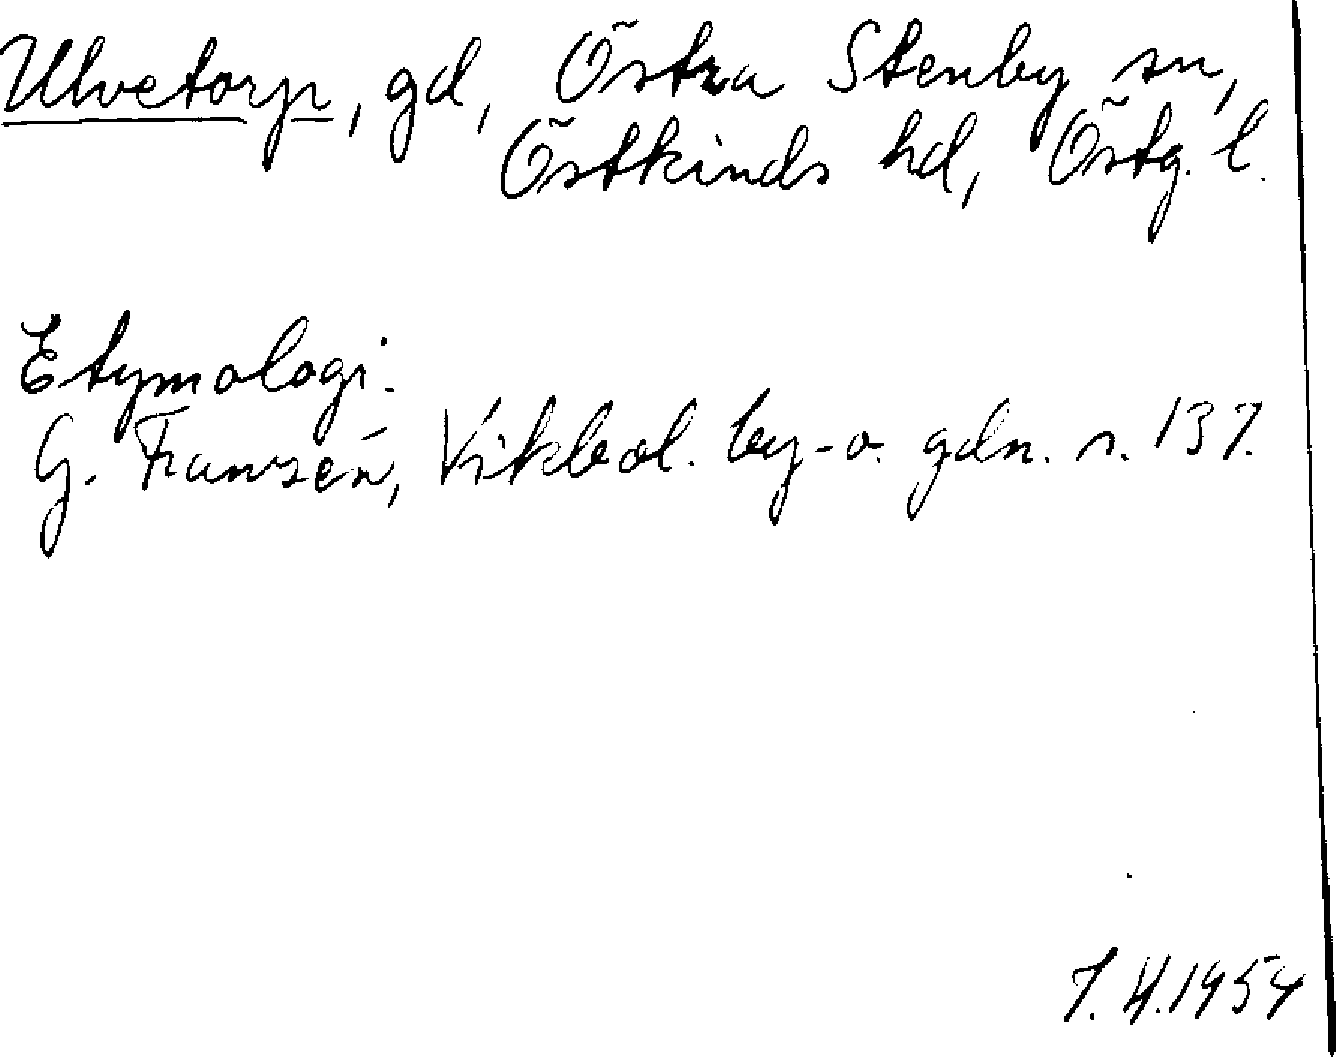 Ulvetorp, gd, Östra Stenby sn,
Östkinds hd, Östg. l.
Etymologi.
G. Franzén, Vikbol. by- o. gdn. s. 137.
7.4.1954